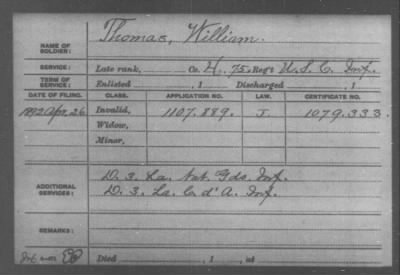 NAME OF SOLDIER: Thomas, William.
SERVICE: Late rank, Co. H, 75 Reg't U.S.C. Inf.
TERM OF SERVICE: Enlisted , 1 Discharged , 1
DATE OF FILING. CLASS. APPLICATION NO. LAW. CERTIFICATE NO.
1892 Apr. 26 Invalid, 1107.889. J. 1079.333.
Widow,
Minor,
ADDITIONAL SERVICES: D. 3. La. Nat. Gds. Inf.
D. 3. La. C. d'A. Inf.
REMARKS:
Died , 1 , at